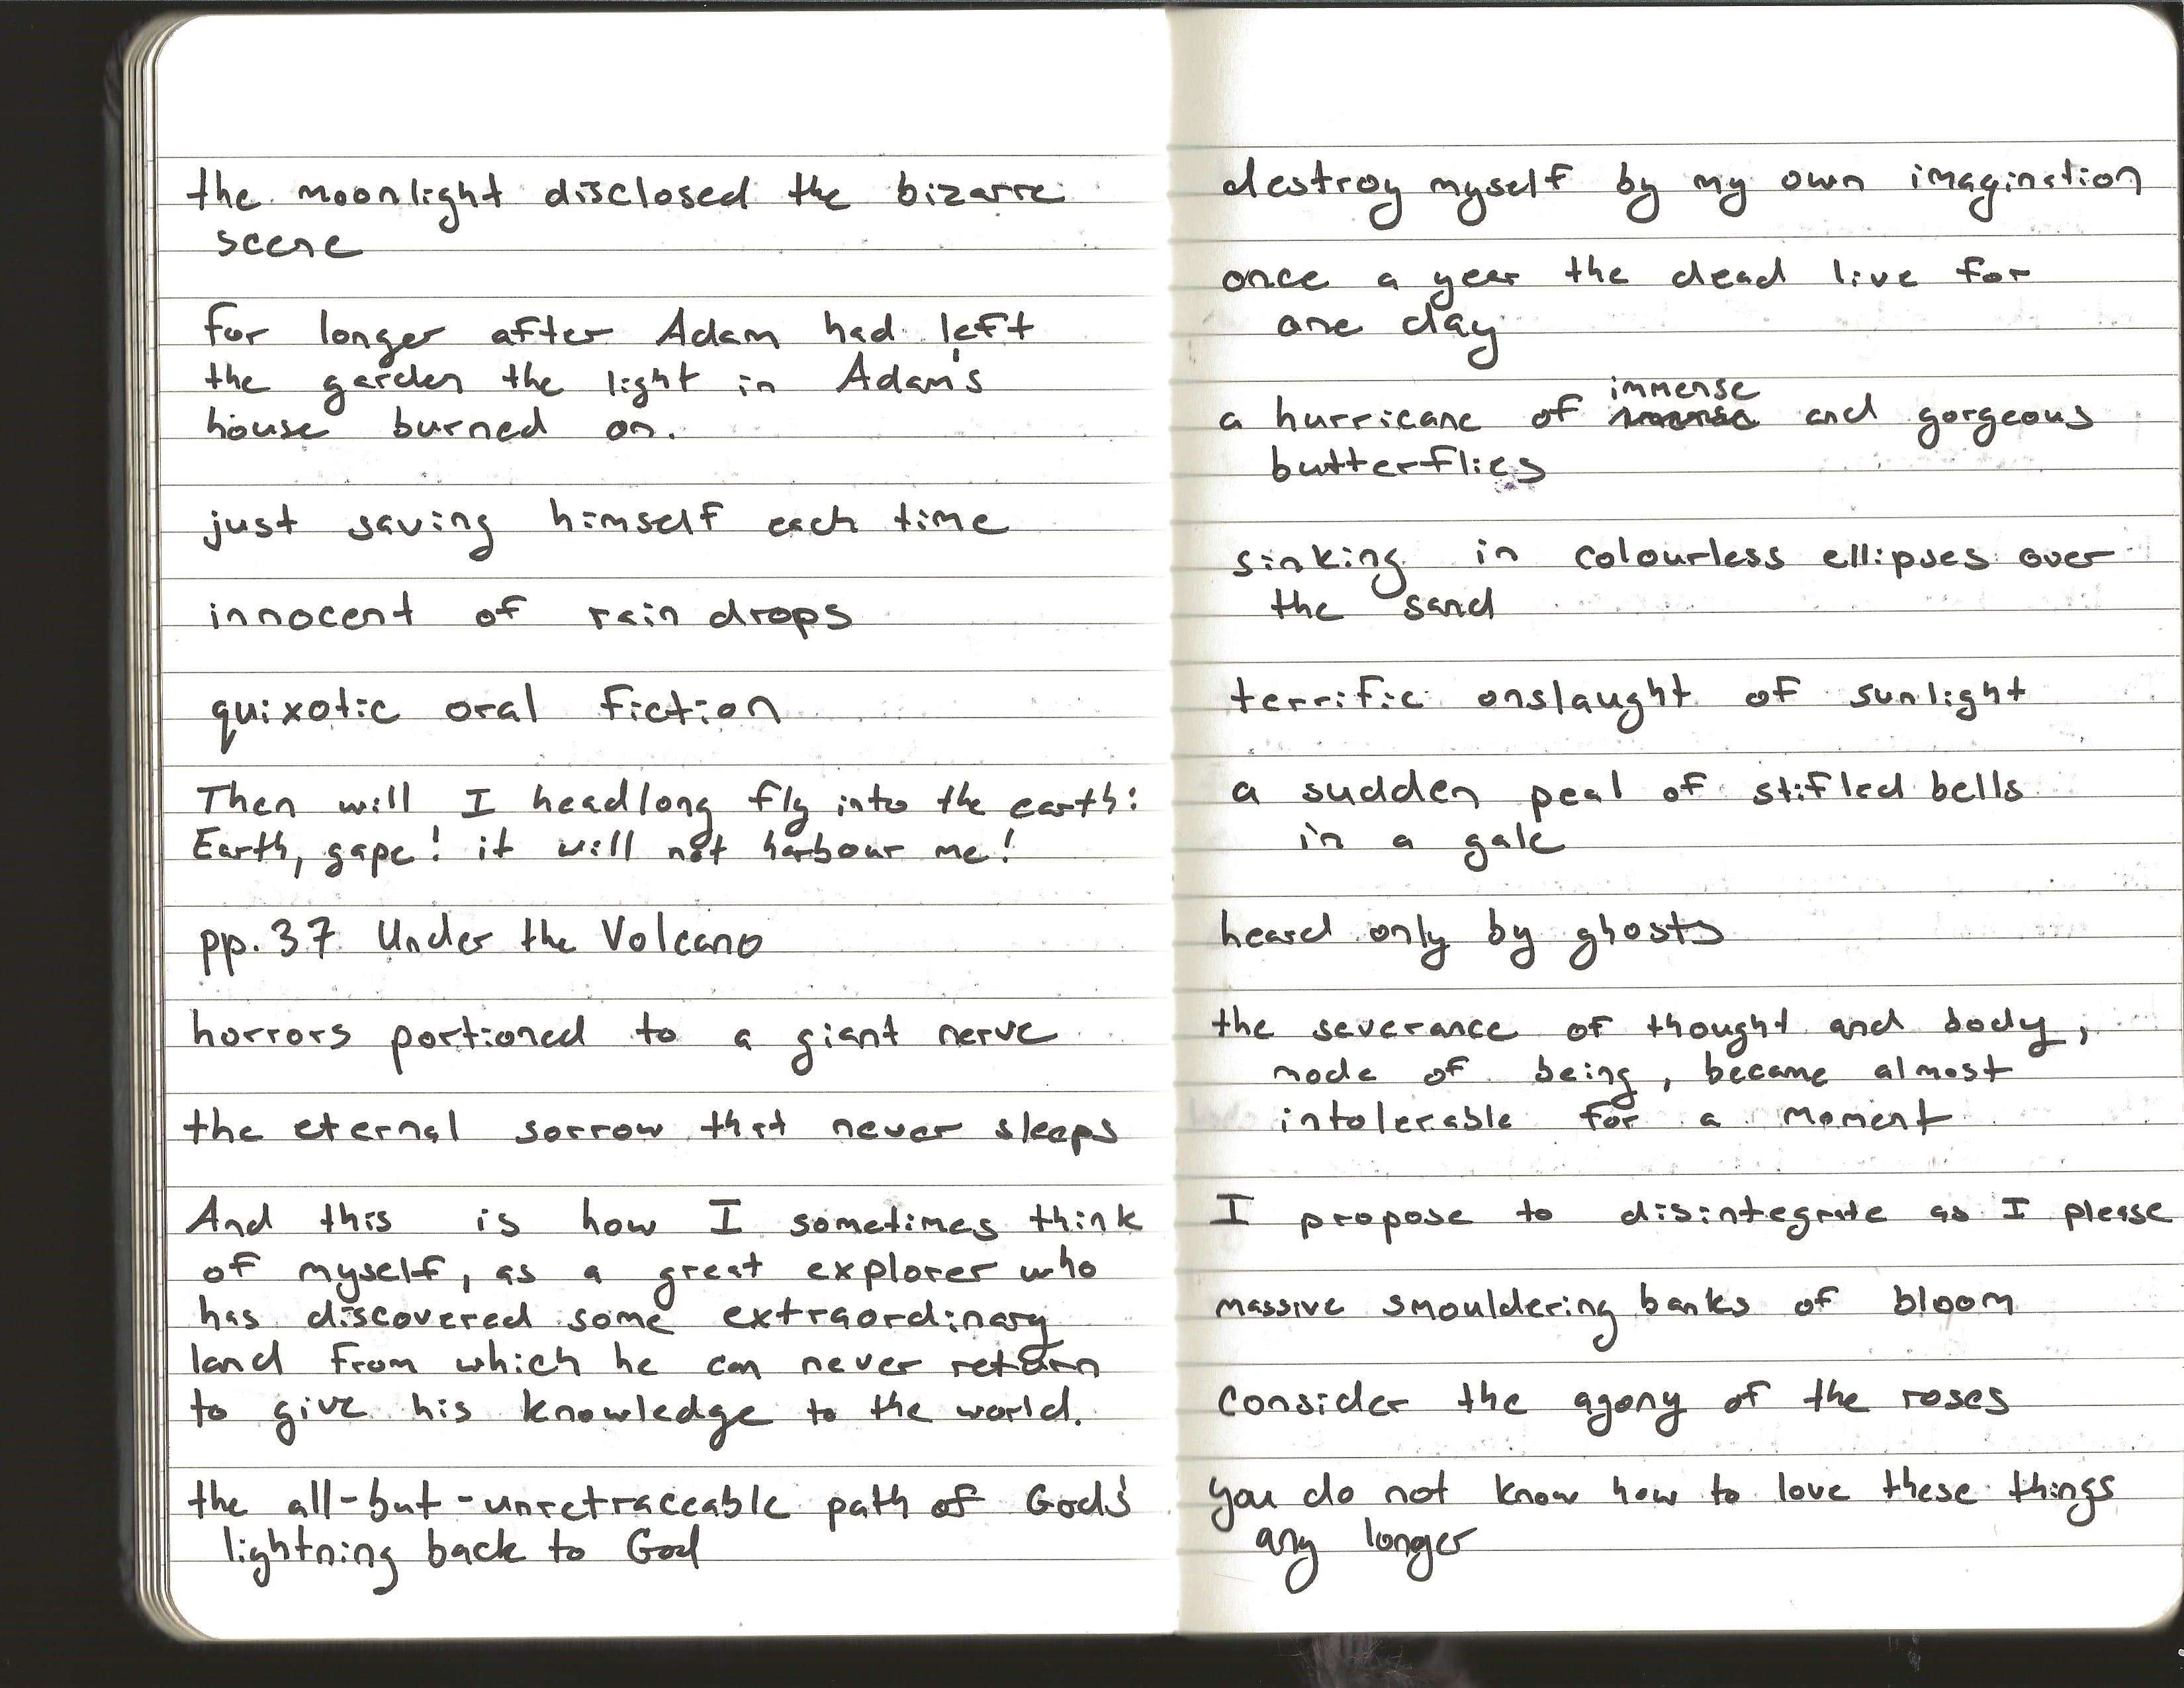 the moonlight disclosed the bizarre
scene
for longer after Adam had left
the garden the light in Adam's
house burned on.
just saving himself each time
innocent of rain drops
quixotic oral fiction
Then will I headlong fly into the earth:
Earth, gape! it will not harbour me!
pp. 37 Under the Volcano
horrors portioned to a giant nerve
the eternal sorrow that never sleeps
And this is how I sometimes think
of myself, as a great explorer who
has discovered some extraordinary
land from which he can never return
to give his knowledge to the world.
the all-but-unretraceable path of God's
lightning back to God
destroy myself by my own imagination
once a year the dead live for
one day
immense
a hurricane of and gorgeous
butterflies
sinking in colourless ellipses over
the sand
terrific onslaught of sunlight
a sudden peal of stifled bells
in a gale
heard only by ghosts
the severance of thought and body,
mode of being, became almost
intolerable for a moment
I propose to disintegrate as I please
massive smouldering banks of bloom
consider the agony of the roses
you do not know how to love these things
any longer